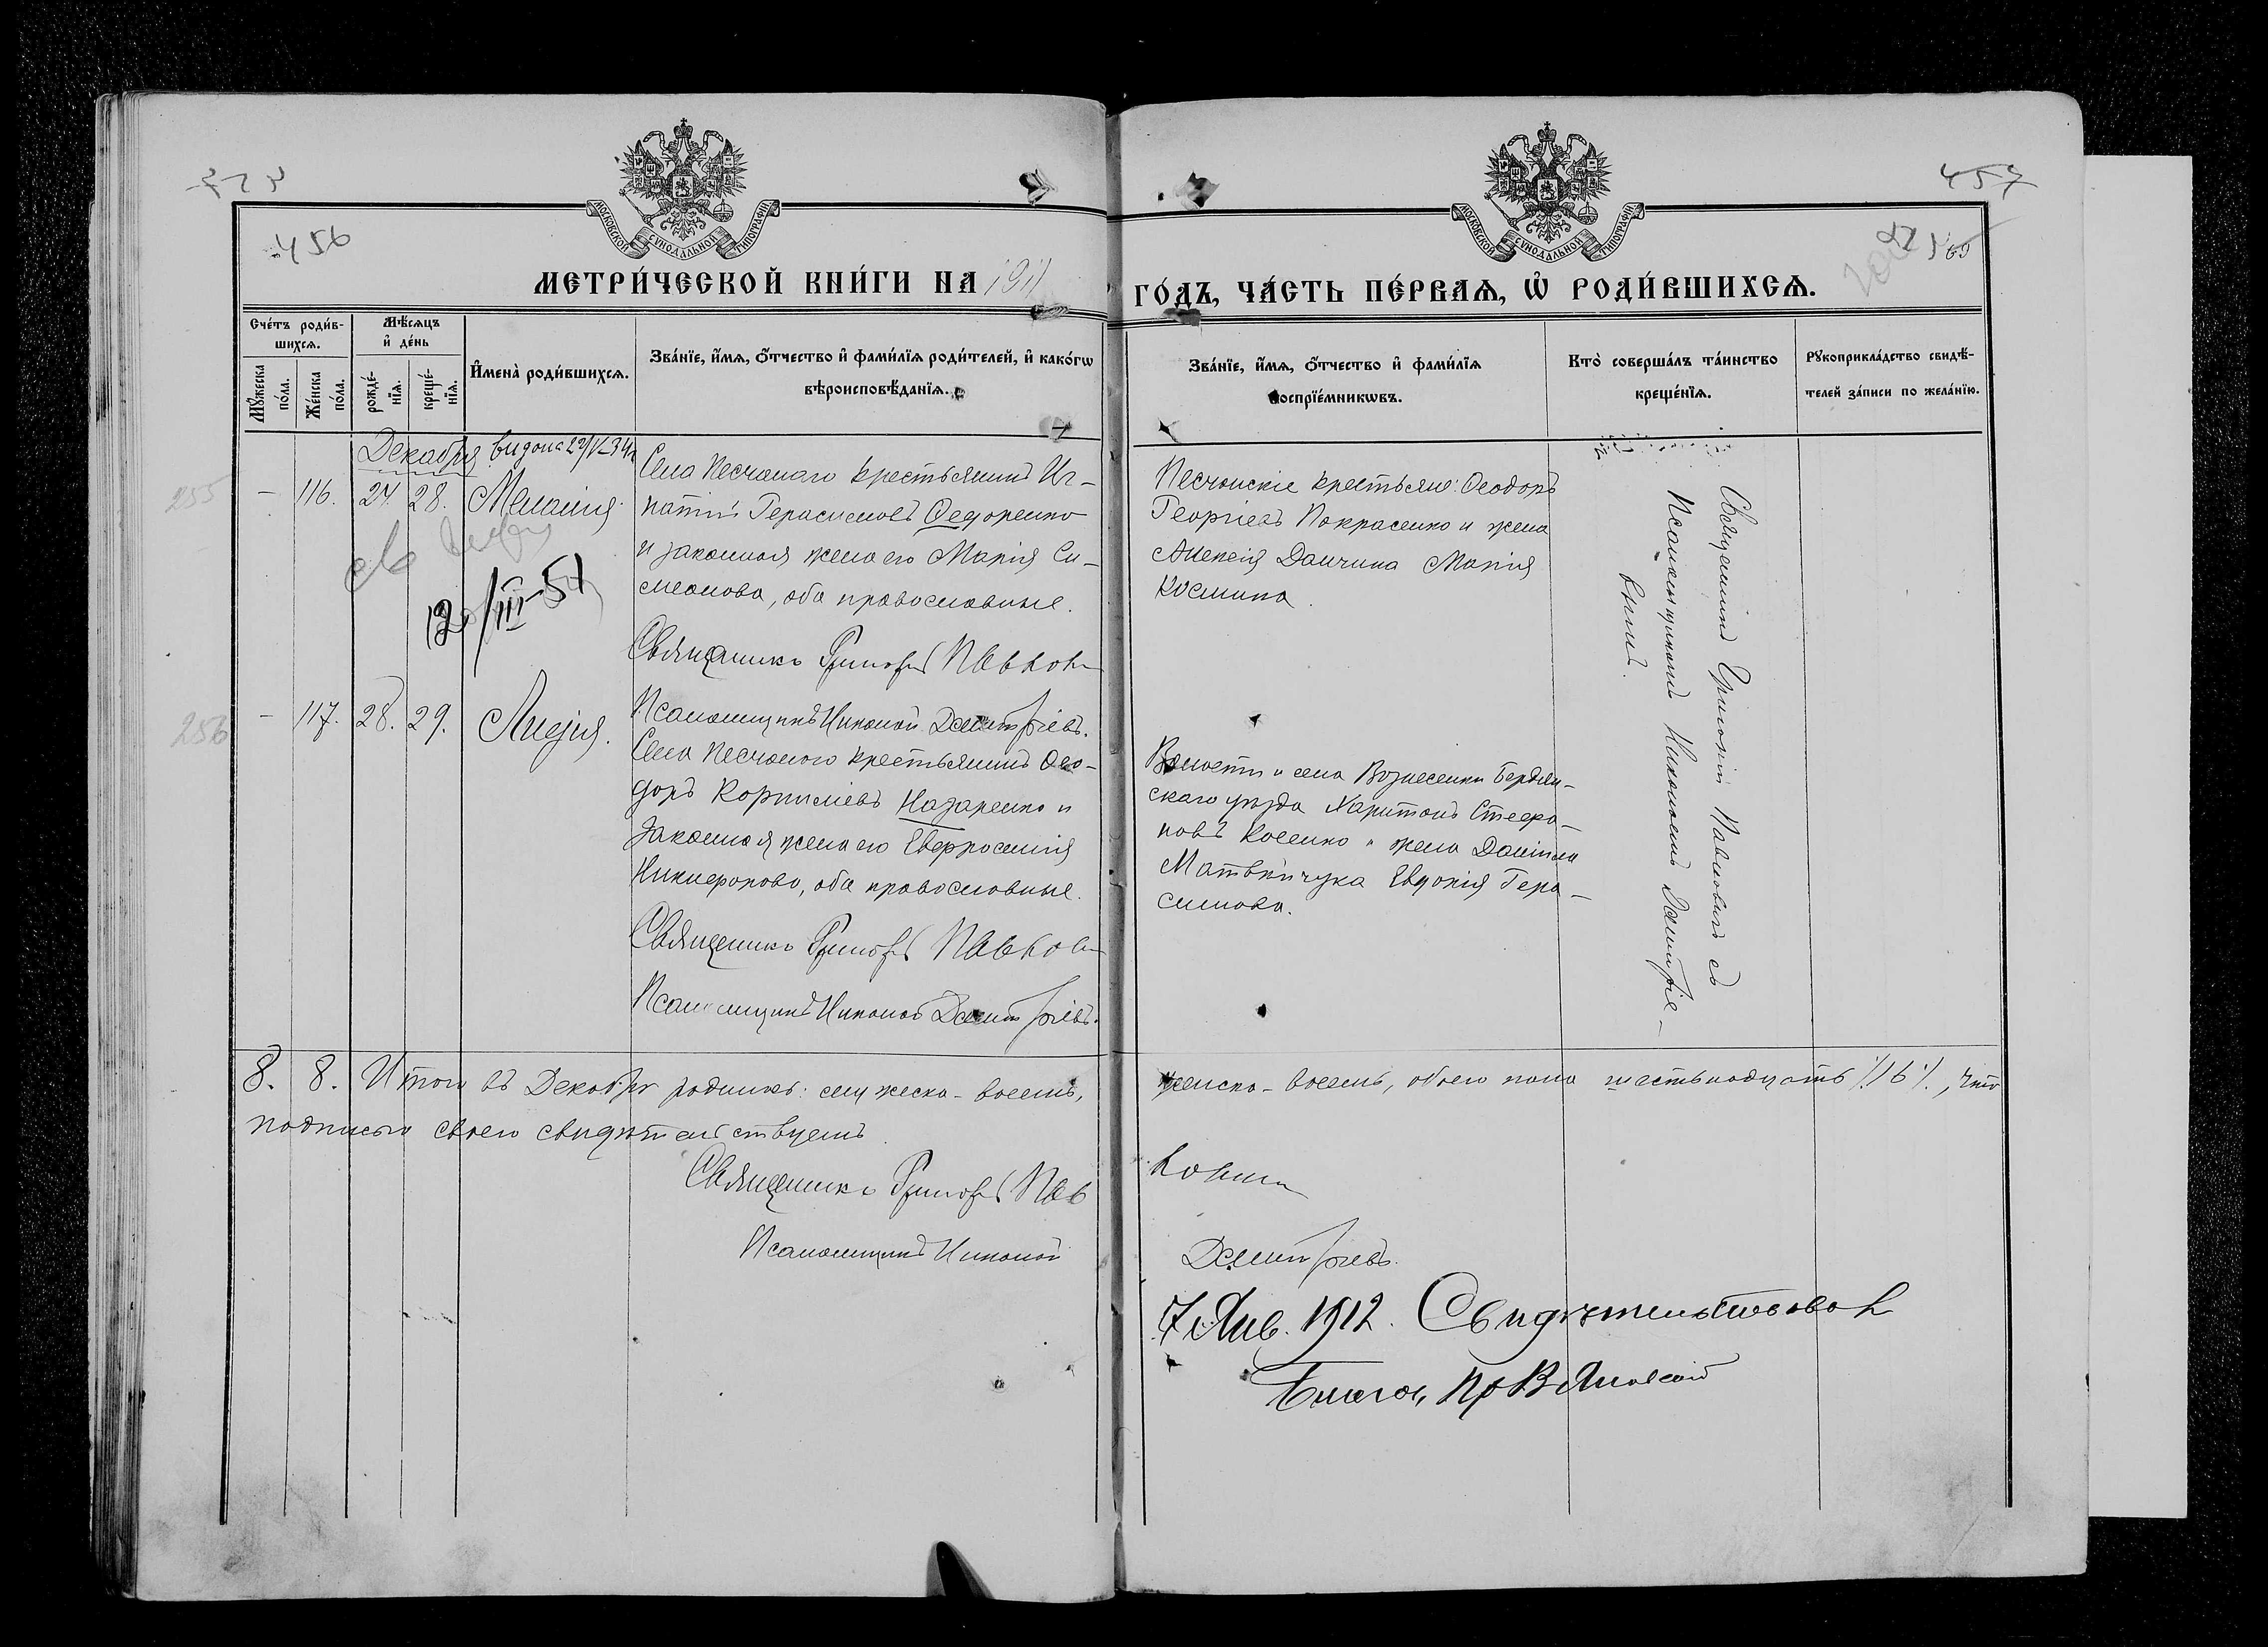 456
457
МОСКОВСКОЙ СѴНОДАЛЬНОЙ ТИПОГРАФІИ
МОСКОВСКОЙ СѴНОДАЛЬНОЙ ТИПОГРАФІИ
МЕТРИ́ЧЕСКОЙ КНИ́ГИ НА 1911
ГО́ДЪ, ЧА́СТЬ ПЕ́РВАѦ, Ѡ҆ РОДИ́ВШИХСѦ.
Сче́тъ роди́в-
шихсѧ.
Мꙋ́жеска по́ла.
Же́нска по́ла.
Мѣ́сѧцъ
и҆ де́нь
рожде́-
нїѧ.
креще́-
нїѧ.
И҆мена̀ роди́вшихсѧ.
Зва́нїе, и҆́мѧ, ѻ҆́тчество и҆ фами́лїѧ роди́телей, и҆ како́гѡ
вѣроисповѣ́данїѧ.
Зва́нїе, и҆́мѧ, ѻ҆́тчество и҆ фами́лїѧ
воспрїе́мникѡвъ.
Кто̀ соверша́лъ та́инство
креще́нїѧ.
Рꙋкоприкла́дство свидѣ́-
телей за́писи по жела́нїю.
Декабря
255
- 116. 24. 28. Меланія
Села Песчанаго крестьянинъ Иг-
натій Герасимовъ Ѳедоренко
и законная жена его Марія Си-
меонова, оба православные.
Священникъ Григорій Павловичъ
Псаломщикъ Никоній Димитріевъ.
20/III-51
Песчанскіе крестьяне: Ѳеодоръ
Георгіевъ Покрасенко и жена
Алексія Данчина Марія
Космина.
Священникъ Григорій Павловичъ съ
Псаломщикомъ Никоніемъ Димитріе-
вымъ.
256
- 117. 28. 29. Лидія.
Села Песчаного крестьянинъ Ѳео-
доръ Корниліевъ Назаренко и
законная жена его Евфросинія
Никифорова, оба православные.
Священникъ Григорій Павловичъ
Псаломщикъ Никоній Димитріевъ.
Волости и села Вознесенки Бердян-
скаго уѣзда Харитонъ Стефа-
новъ Косенко и жена Даніила
Матвѣйчука Евдокія Гера-
симова.
8. 8. Итого въ Декабрѣ родилось: мужеска - восемь,
женска - восемь, обоего пола шестьнадцать /16/., что
подписью своею свидѣтельствуемъ
Священникъ Григорій Пав
ловичъ
Псаломщикъ Никоній
Димитріевъ.
7 Янв. 1912. Свидѣтельствовал